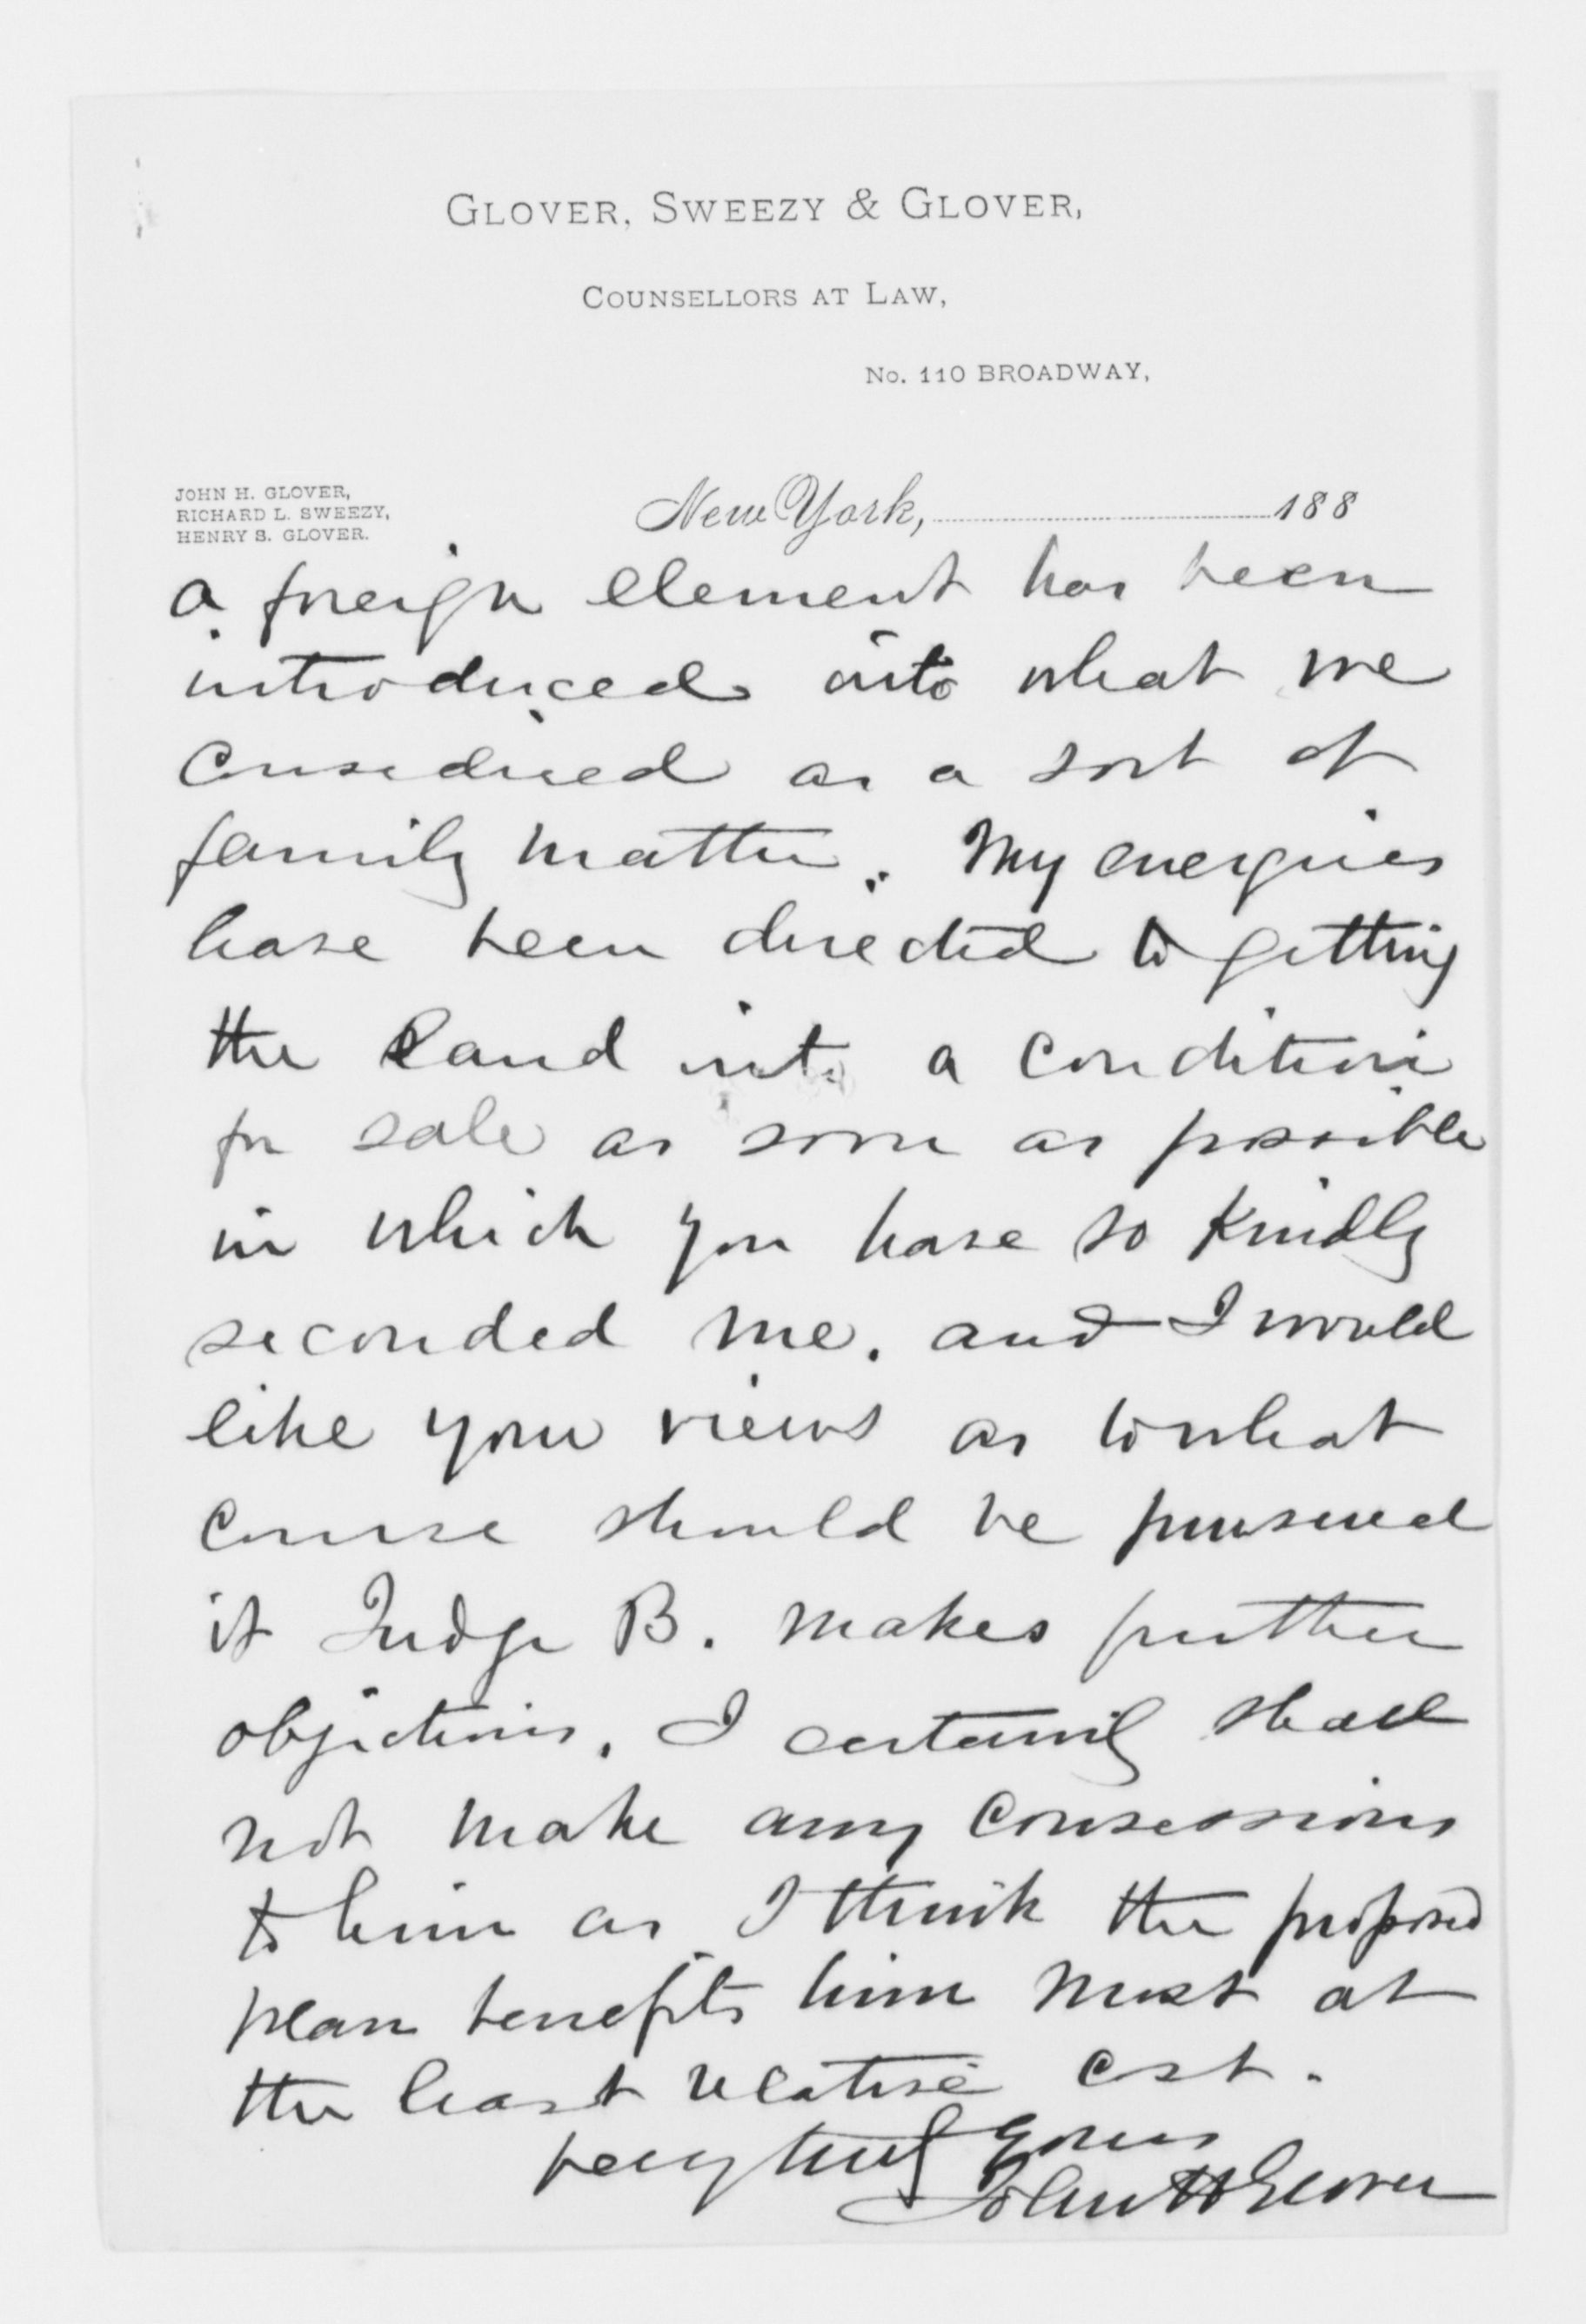 GLOVER, SWEEZY & GLOVER,
COUNSELLORS AT LAW,
No. 110 BROADWAY,
JOHN H. GLOVER,
RICHARD L. SWEEZY,
HENRY S. GLOVER.
New York, 188
a foreign element has been
introduced into what we
considered as a sort of
family matter. My energies
have been directed to getting
the land into a condition
for sale as soon as possible
in which you have so kindly
seconded me. and I would
like your views as to what
course should be pursued
if Judge B. makes further
objections. I certainly shall
not make any consessions
to him as I think the proposed
plan benefits him most at
the least relative cost.
very truly yours
John H Glover